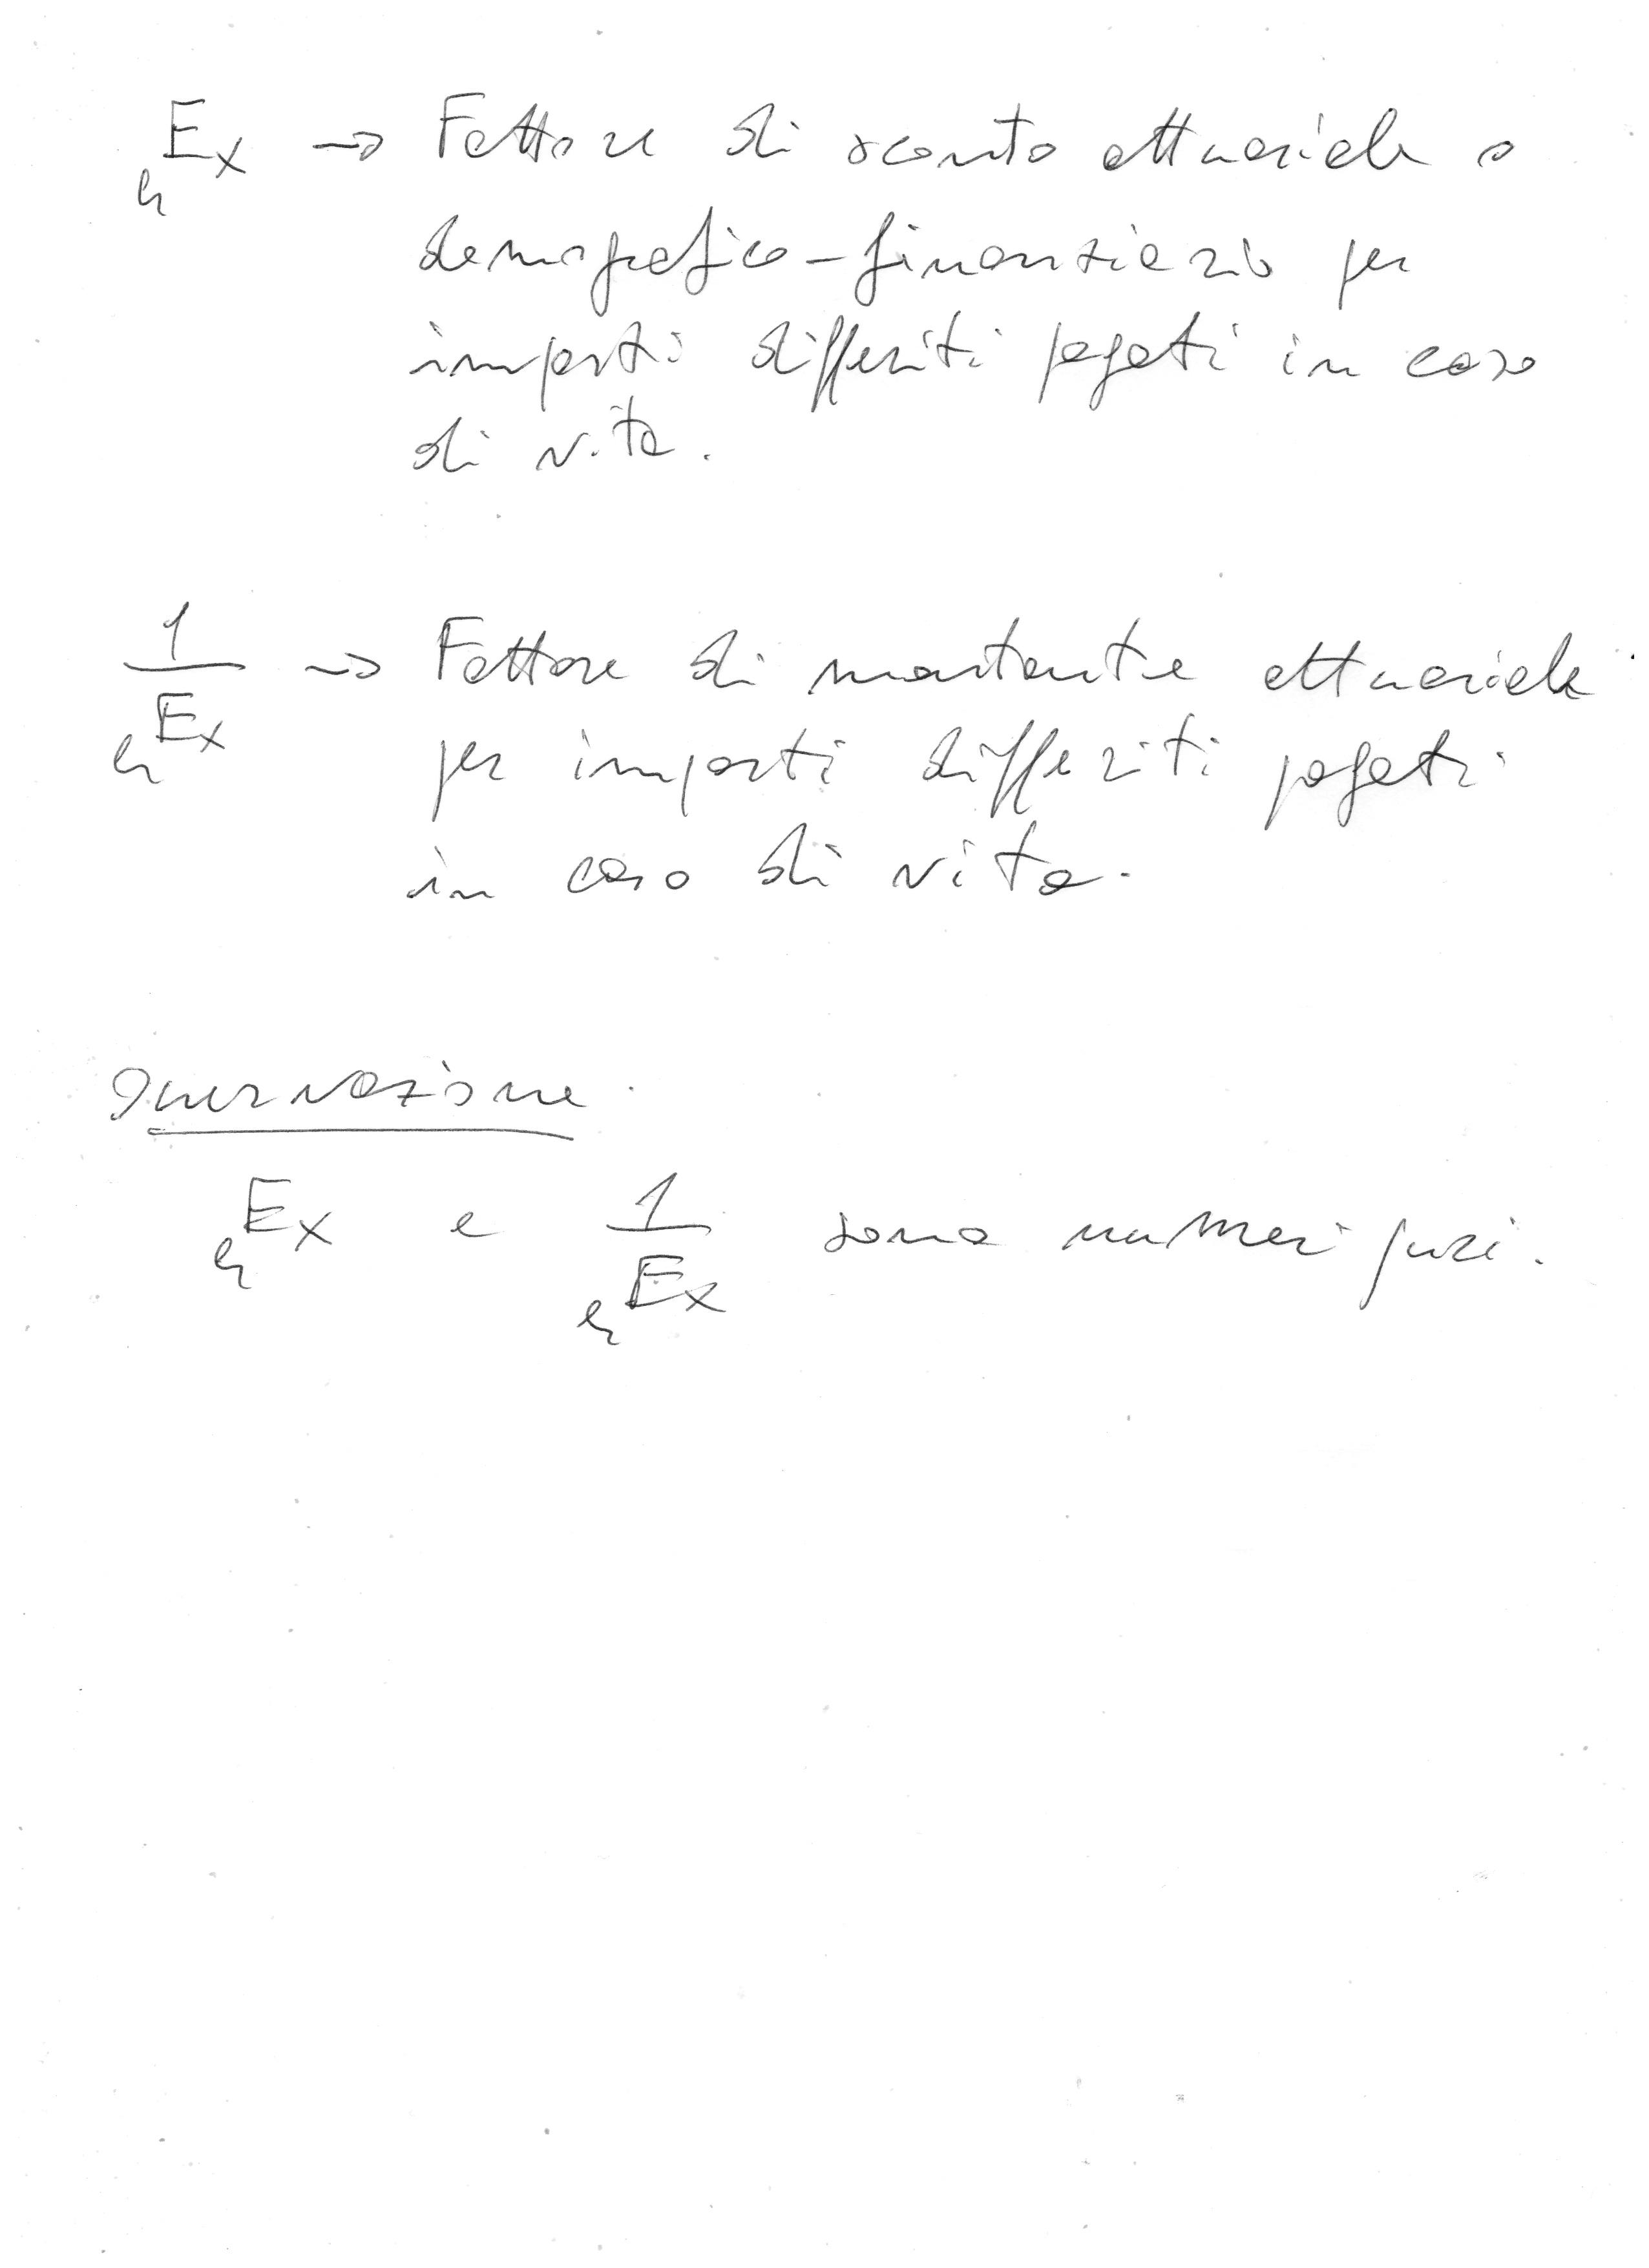 ₕEₓ → Fattore di sconto attuariale o
demografico-finanziario per
importi differiti pagati in caso
di vita.
1/ₕEₓ → Fattore di montante attuariale
per importi differiti pagati
in caso di vita.
Osservazione
ₕEₓ e 1/ₕEₓ sono numeri puri.